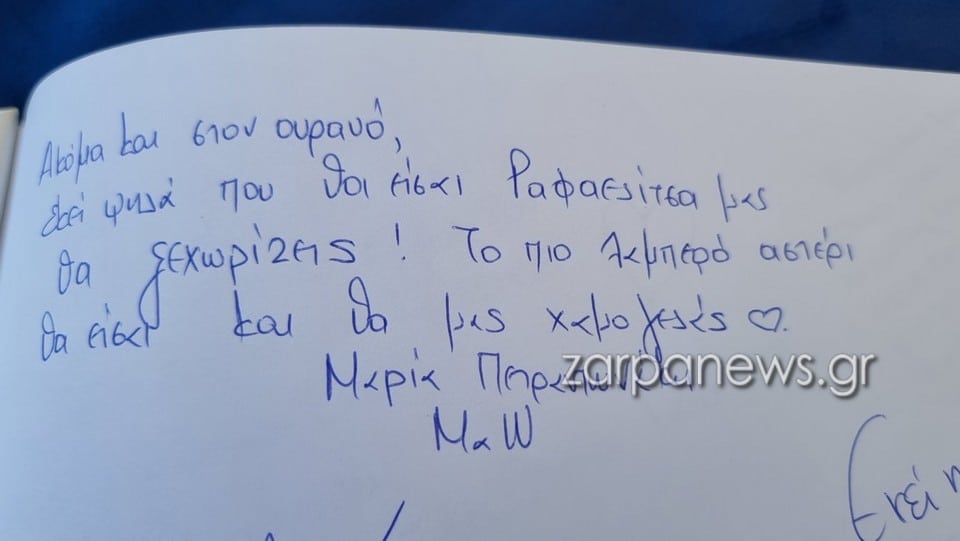 Ακόμα και στον ουρανό,
εκεί ψηλά που θα είσαι Ραφαελίτσα μας
θα ξεχωρίζεις ! Το πιο λαμπερό αστέρι
θα είσαι και θα μας χαμογελάς ♡.
Μαρία
zarpanews.gr
ΜαΨ
Εκεί